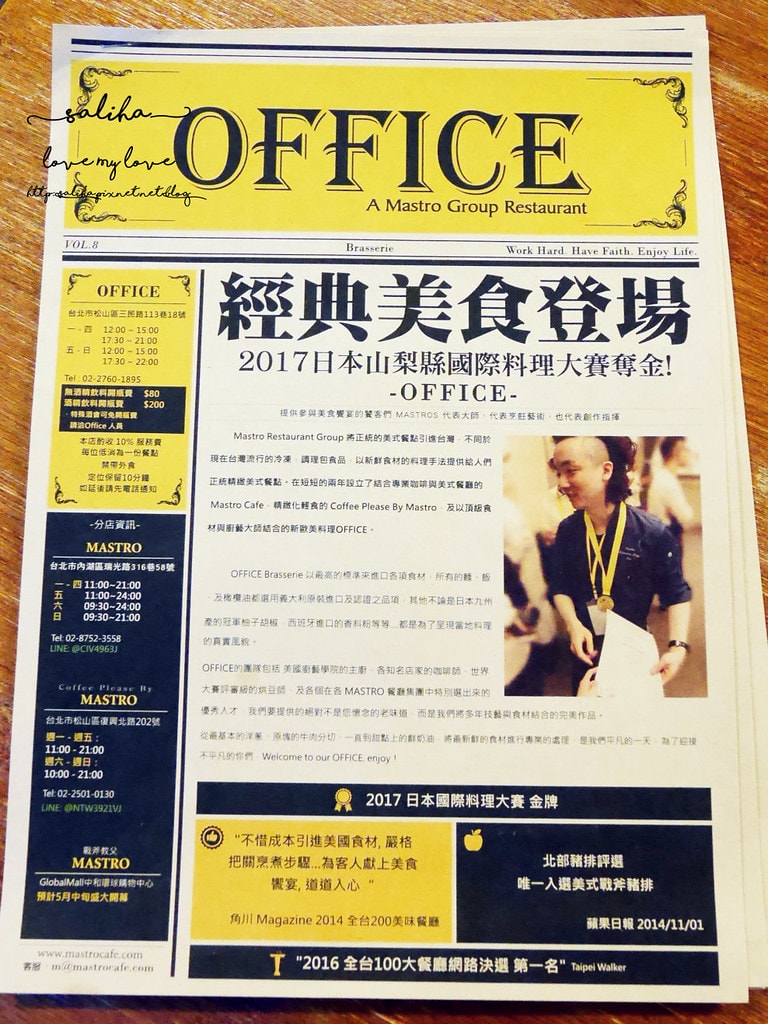 saliha
love my love
http:saliha.pixnet.net.blog
OFFICE
A Mastro Group Restaurant
VOL.8
Brasserie
Work Hard. Have Faith. Enjoy Life.
OFFICE
台北市松山區三民路113巷18號
一 - 四 12:00 ~ 15:00
17:30 ~ 21:00
五 - 日 12:00 ~ 15:00
17:30 ~ 22:00
Tel : 02-2760-1895
無酒精飲料開瓶費 $80
酒精飲料開瓶費 $200
· 特殊酒會可免開瓶費
請洽Office 人員
本店酌收 10% 服務費
每位低消為一份餐點
禁帶外食
定位保留10分鐘
如延後請先電話通知
-分店資訊-
MASTRO
台北市內湖區瑞光路316巷58號
一 - 四 11:00~21:00
五 11:00~24:00
六 09:30~24:00
日 09:30~21:00
Tel: 02-8752-3558
LINE: @CIV4963J
Coffee Please By
MASTRO
台北市松山區復興北路202號
週一 - 週五 :
11:00 - 21:00
週六 - 週日 :
10:00 - 21:00
Tel: 02-2501-0130
LINE: @NTW3921VJ
戰斧教父
MASTRO
GlobalMall中和環球購物中心
預計5月中旬盛大開幕
www.mastrocafe.com
客服 : m@mastrocafe.com
經典美食登場
2017日本山梨縣國際料理大賽奪金!
-OFFICE-
提供參與美食饗宴的饕客們 MASTROS 代表大師、代表烹飪藝術、也代表創作指揮
Mastro Restaurant Group 將正統的美式餐點引進台灣，不同於
現在台灣流行的冷凍、調理包食品，以新鮮食材的料理手法提供給人們
正統精緻美式餐點。在短短的兩年設立了結合專業咖啡與美式餐廳的
Mastro Cafe，精緻化輕食的 Coffee Please By Mastro，及以頂級食
材與廚藝大師結合的新歐美料理OFFICE。
OFFICE Brasserie 以最高的標準來進口各項食材，所有的麵、飯
、及橄欖油都選用義大利原裝進口及認證之品項，其他不論是日本九州
產的冠軍柚子胡椒，西班牙進口的香料粉等等...都是為了呈現當地料理
的真實風貌。
OFFICE的團隊包括 美國廚藝學院的主廚、各知名店家的咖啡師、世界
大賽評審級的烘豆師、及各個在各 MASTRO 餐廳集團中特別選出來的
優秀人才，我們要提供的絕對不是您懷念的老味道，而是我們將多年技藝與食材結合的完美作品。
從最基本的洋蔥、原塊的牛肉分切，一直到甜點上的鮮奶油，將最新鮮的食材進行專業的處理，是我們平凡的一天，為了迎接
不平凡的你們，Welcome to our OFFICE, enjoy !
2017 日本國際料理大賽 金牌
"不惜成本引進美國食材, 嚴格
把關烹煮步驟...為客人獻上美食
饗宴, 道道入心 "
角川 Magazine 2014 全台200美味餐廳
北部豬排評選
唯一入選美式戰斧豬排
蘋果日報 2014/11/01
"2016 全台100大餐廳網路決選 第一名" Taipei Walker